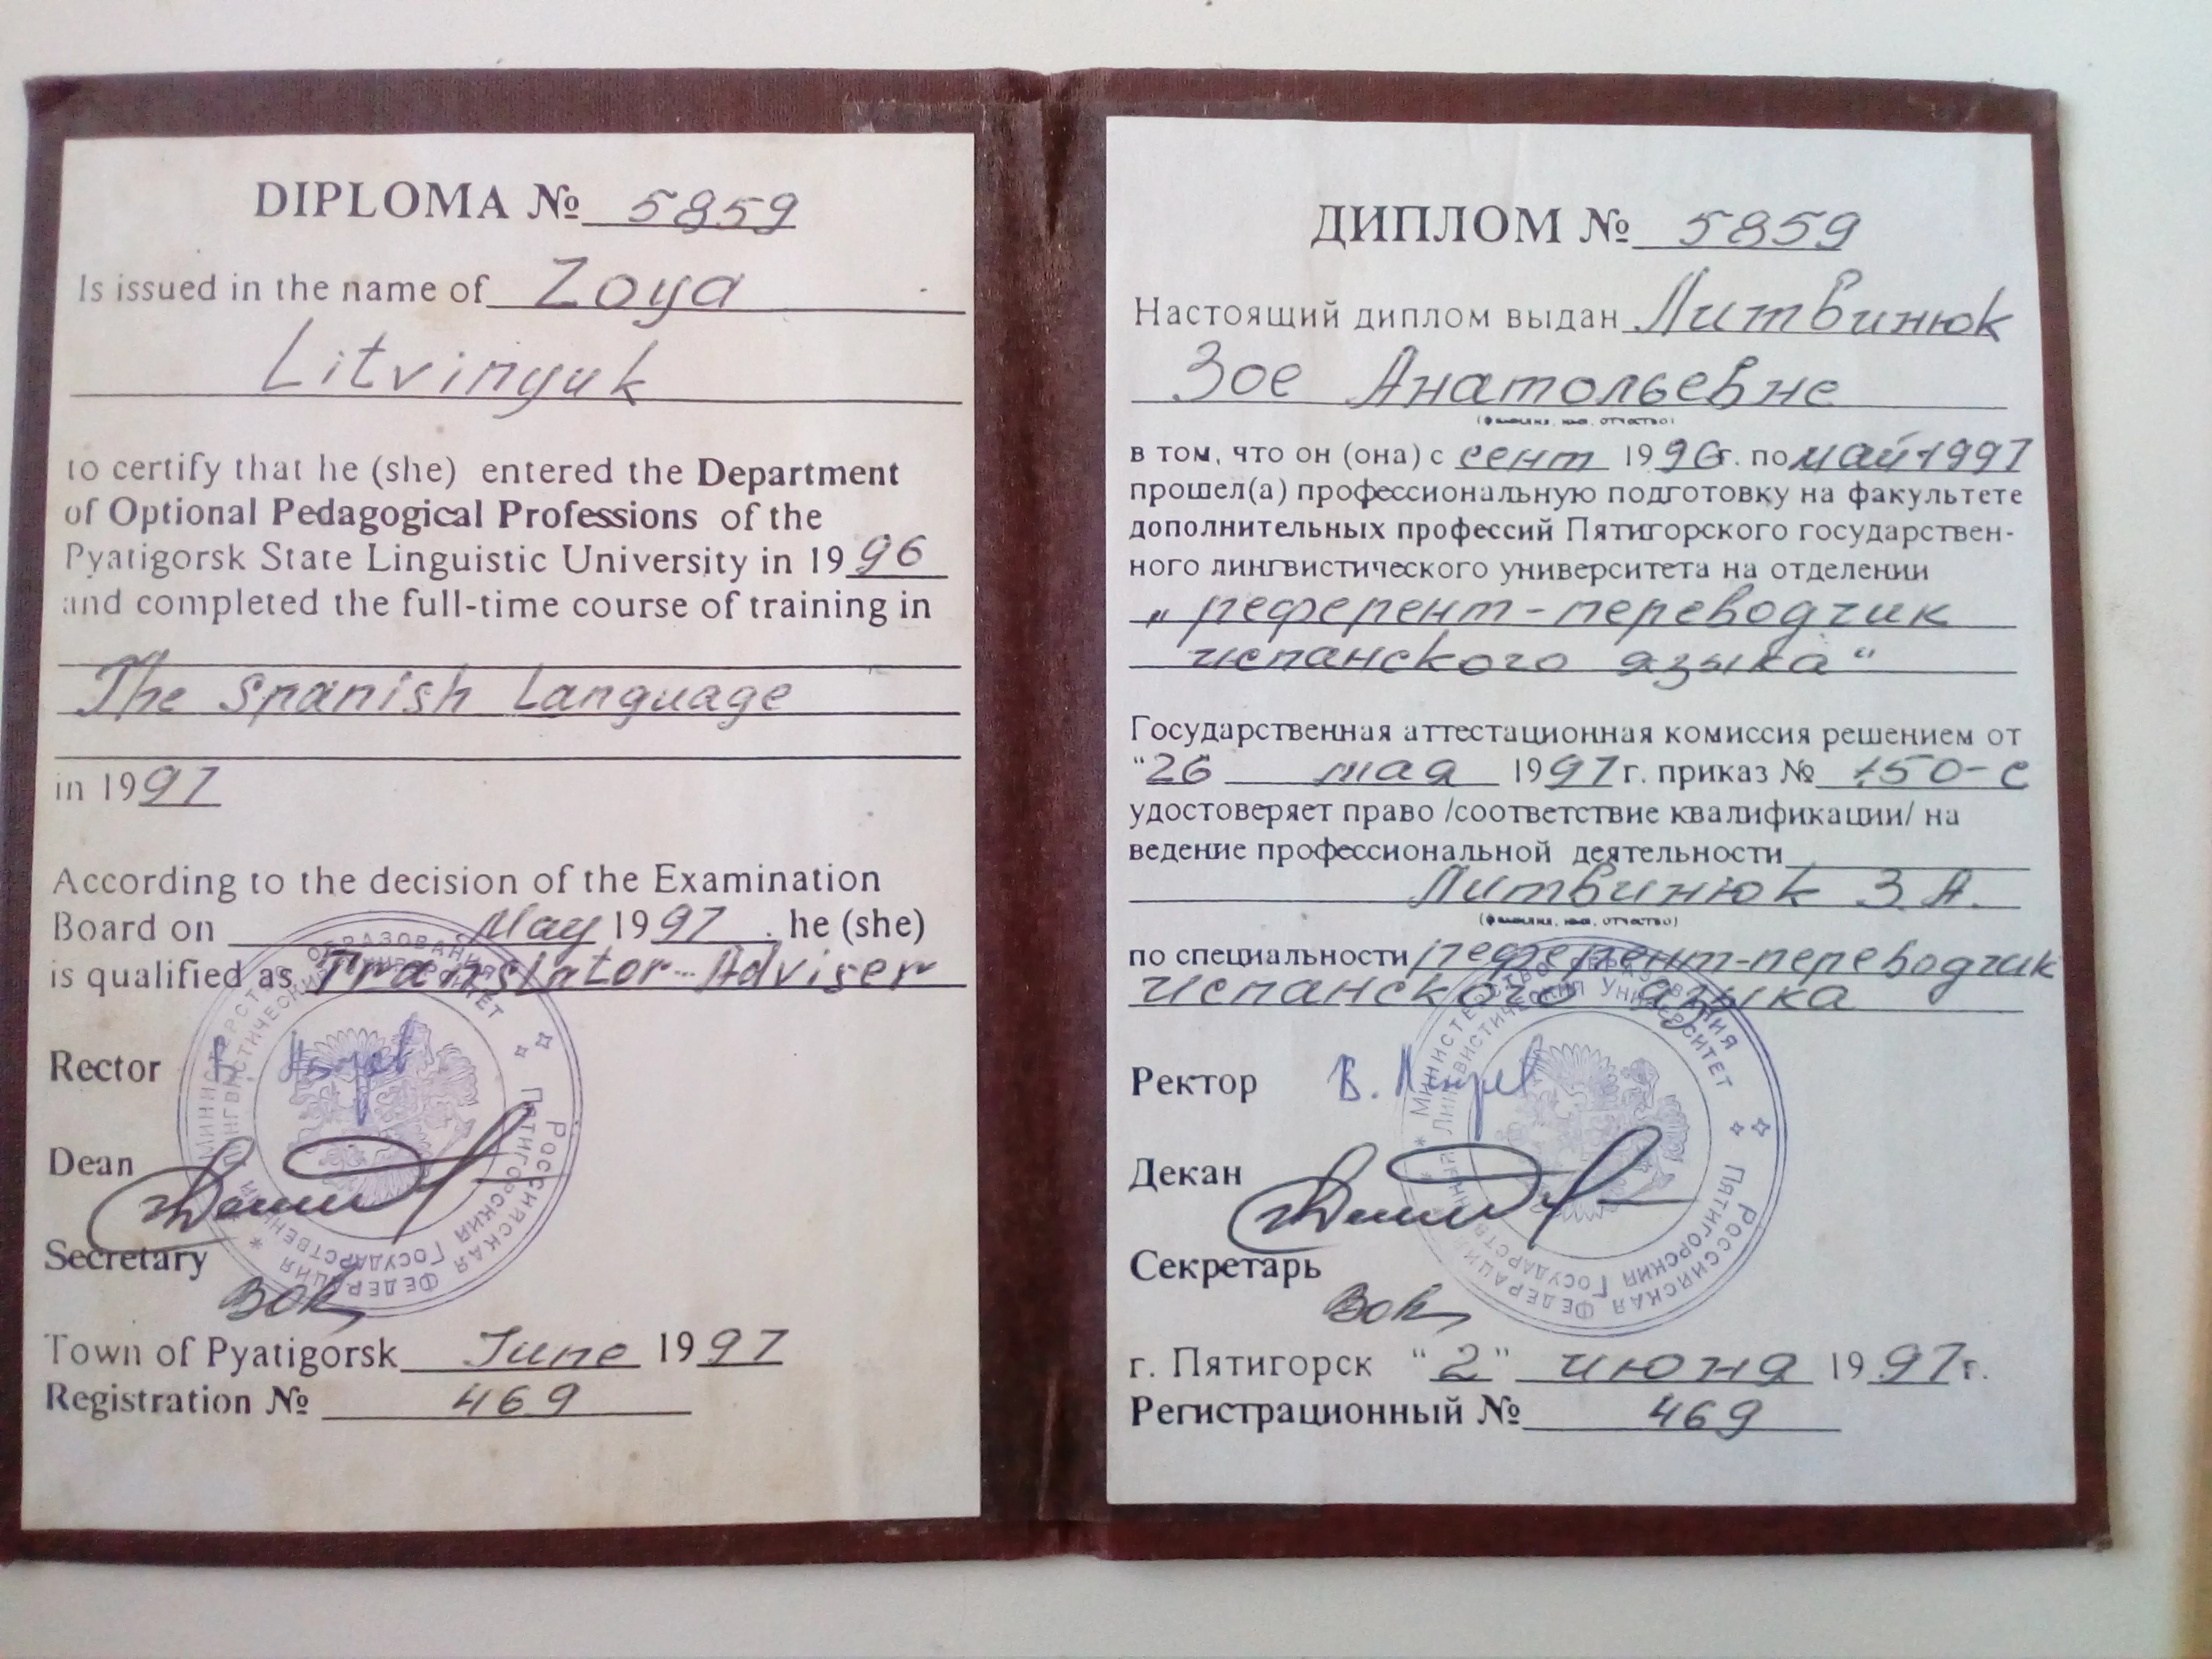 DIPLOMA № 5859
Is issued in the name of Zoya
Litvinyuk
to certify that he (she) entered the Department
of Optional Pedagogical Professions of the
Pyatigorsk State Linguistic University in 1996
and completed the full-time course of training in
The Spanish Language
in 1997
According to the decision of the Examination
Board on May 1997. he (she)
is qualified as Translator-Adviser
Rector
Dean
Secretary
Town of Pyatigorsk June 1997
Registration № 469
МИНИСТЕРСТВО ОБРАЗОВАНИЯ
РОССИЙСКАЯ ФЕДЕРАЦИЯ
ПЯТИГОРСКИЙ ГОСУДАРСТВЕННЫЙ
ЛИНГВИСТИЧЕСКИЙ УНИВЕРСИТЕТ
ДИПЛОМ № 5859
Настоящий диплом выдан Литвинюк
Зое Анатольевне
(фамилия, имя, отчество)
в том, что он (она) с сент 1996г. по май 1997
прошел(а) профессиональную подготовку на факультете
дополнительных профессий Пятигорского государствен-
ного лингвистического университета на отделении
„референт-переводчик
испанского языка“
Государственная аттестационная комиссия решением от
“26 мая 1997г. приказ № 150-с
удостоверяет право /соответствие квалификации/ на
ведение профессиональной деятельности
Литвинюк З.А.
(фамилия, имя, отчество)
по специальности референт-переводчик
испанского языка
Ректор
Декан
Секретарь
г. Пятигорск “2” июня 1997г.
Регистрационный № 469
МИНИСТЕРСТВО ОБРАЗОВАНИЯ
РОССИЙСКАЯ ФЕДЕРАЦИЯ
ПЯТИГОРСКИЙ ГОСУДАРСТВЕННЫЙ
ЛИНГВИСТИЧЕСКИЙ УНИВЕРСИТЕТ